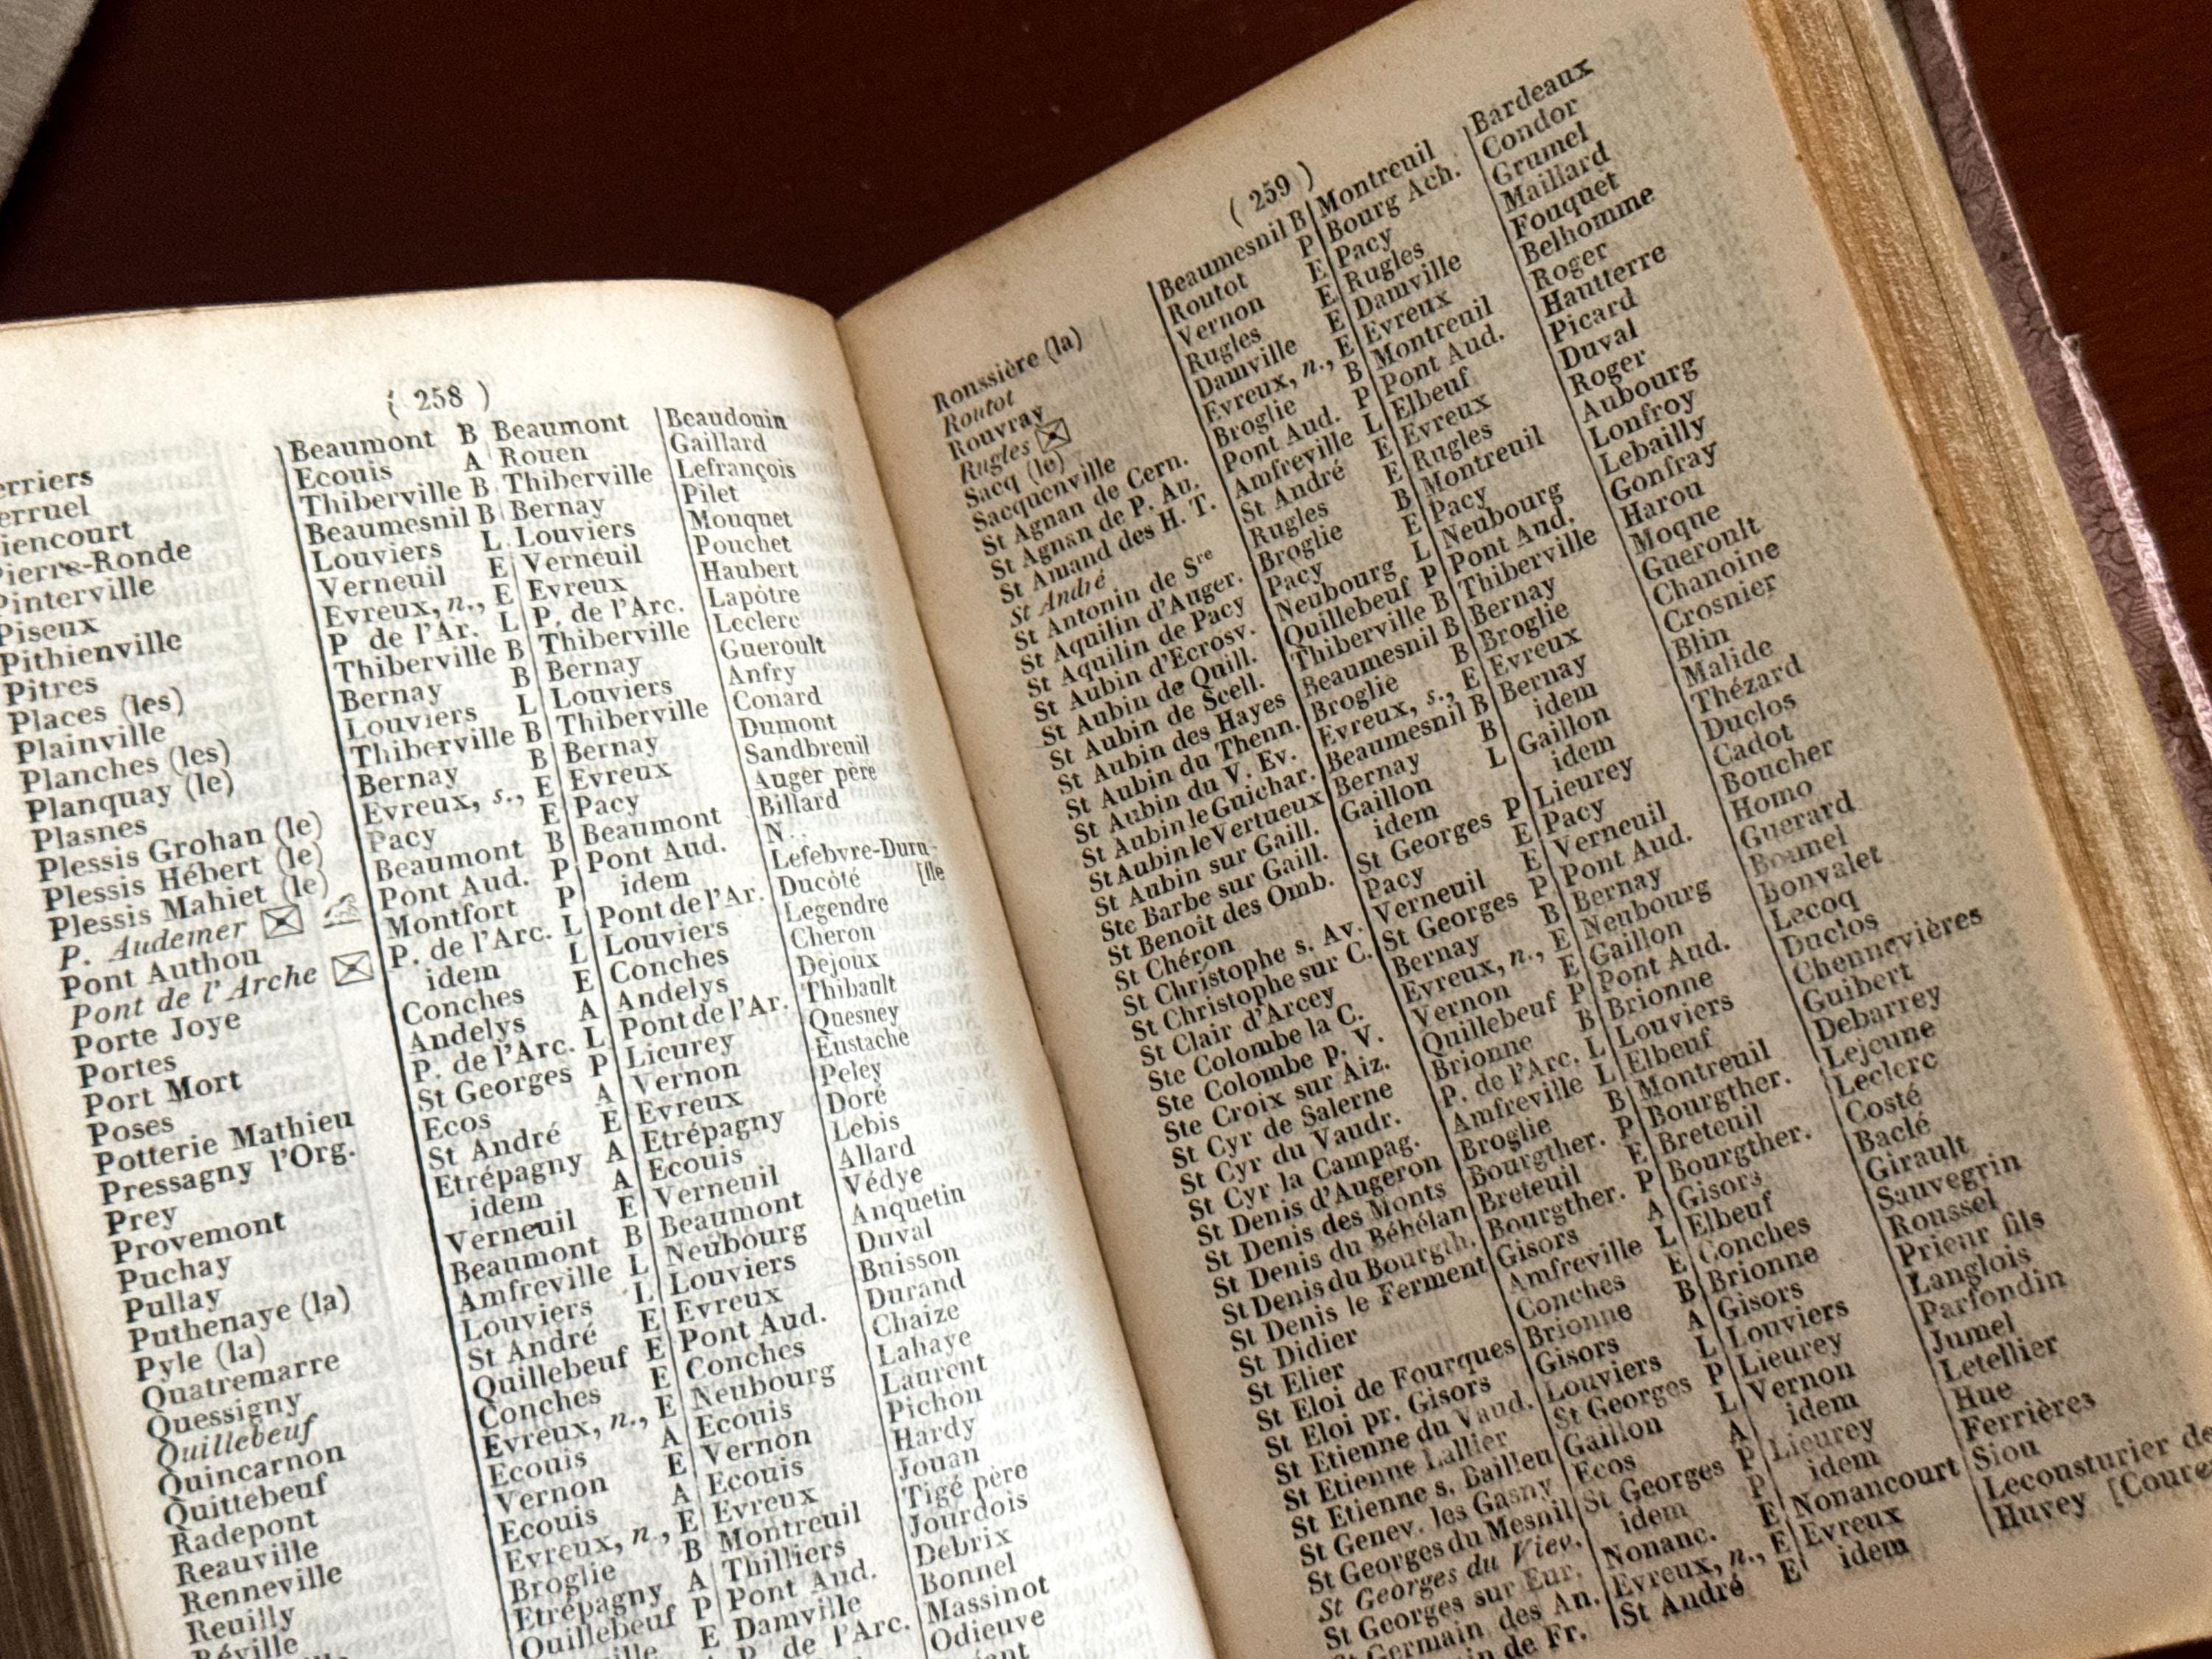 ( 258 )
erriers Beaumont B Beaumont Beaudouin
erruel Ecouis A Rouen Gaillard
iencourt Thiberville B Thiberville Lefrançois
Pierre-Ronde Beaumesnil B Bernay Pilet
Pinterville Louviers L Louviers Mouquet
Piseux Verneuil E Verneuil Pouchet
Pithienville Evreux, n., E Evreux Haubert
Pitres P de l'Ar. L P. de l'Arc. Lapôtre
Places (les) Thiberville B Thiberville Leclerc
Plainville Bernay B Bernay Gueroult
Planches (les) Louviers L Louviers Anfry
Planquay (le) Thiberville B Thiberville Conard
Plasnes Bernay B Bernay Dumont
Plessis Grohan (le) Evreux, s., E Evreux Sandbreuil
Plessis Hébert (le) Pacy E Pacy Auger père
Plessis Mahiet (le) Beaumont B Beaumont Billard
P. Audemer Pont Aud. P Pont Aud. N..
Pont Authou Montfort P idem Lefebvre-Duru-
Pont de l'Arche P. de l'Arc. L Pont de l'Ar. Ducôté [fle
Porte Joye idem L Louviers Legendre
Portes Conches E Conches Cheron
Port Mort Andelys A Andelys Dejoux
Poses P. de l'Arc. L Pont de l'Ar. Thibault
Potterie Mathieu St Georges P Licurey Quesney
Pressagny l'Org. Ecos A Vernon Eustache
Prey St André E Evreux Peley
Provemont Etrépagny A Etrépagny Doré
Puchay idem A Ecouis Lebis
Pullay Verneuil E Verneuil Allard
Puthenaye (la) Beaumont B Beaumont Védye
Pyle (la) Amfreville L Neubourg Anquetin
Quatremarre Louviers L Louviers Duval
Quessigny St André E Evreux Buisson
Quillebeuf Quillebeuf E Pont Aud. Durand
Quincarnon Conches E Conches Chaize
Quittebeuf Evreux, n., E Neubourg Lahaye
Radepont Ecouis A Ecouis Laurent
Reauville Vernon E Vernon Pichon
Renneville Ecouis A Ecouis Hardy
Reuilly Evreux, n., E Evreux Jouan
Réville Broglie B Montreuil Tigé père
Etrépagny A Thilliers Jourdois
Quillebeuf P Pont Aud. Debrix
ville E Damville Bonnel
P. de l'Arc. Massinot
Odieuve
( 259 )
Ronssière (la) Beaumesnil B Montreuil Bardeaux
Routot Routot P Bourg Ach. Condor
Rouvray Vernon E Pacy Grumel
Rugles Rugles E Rugles Maillard
Sacq (le) Damville E Damville Fouquet
Sacquenville Evreux, n., E Evreux Belhomme
St Agnan de Cern. Broglie B Montreuil Roger
St Agnan de P. Au. Pont Aud. P Pont Aud. Hautterre
St Amand des H. T. Amfreville L Elbeuf Picard
St André St André E Evreux Duval
St Antonin de Sre Rugles E Rugles Roger
St Aquilin d'Auger. Broglie B Montreuil Aubourg
St Aquilin de Pacy Pacy E Pacy Lonfroy
St Aubin d'Ecrosv. Neubourg L Neubourg Lebailly
St Aubin de Quill. Quillebeuf P Pont Aud. Gonfray
St Aubin de Scell. Thiberville B Thiberville Harou
St Aubin des Hayes Beaumesnil B Bernay Moque
St Aubin du Thenn. Broglie B Broglie Gueroult
St Aubin du V. Ev. Evreux, s., E Evreux Chanoine
St Aubin le Guichar. Beaumesnil B Bernay Crosnier
St Aubin le Vertueux Bernay B idem Blin
St Aubin sur Gaill. Gaillon L Gaillon Malide
Ste Barbe sur Gaill. idem idem Thézard
St Benoit des Omb. St Georges P Lieurey Duclos
St Chéron Pacy E Pacy Cadot
St Christophe s. Av. Verneuil E Verneuil Boucher
St Christophe sur C. St Georges P Pont Aud. Homo
St Clair d'Arcey Bernay B Bernay Guerard
Ste Colombe la C. Evreux, n., E Neubourg Boumel
Ste Colombe p. V. Vernon E Gaillon Bonvalet
Ste Croix sur Aiz. Quillebeuf P Pont Aud. Lecoq
St Cyr de Salerne Brionne B Brionne Duclos
St Cyr du Vaudr. P. de l'Arc. L Louviers Chennevières
St Cyr la Campag. Amfreville L Elbeuf Guibert
St Denis d'Augeron Broglie B Montreuil Debarrey
St Denis des Monts Bourgther. P Bourgther. Lejeune
St Denis du Béhélan Breteuil E Breteuil Leclerc
St Denis du Bourgth. Bourgther. P Bourgther. Costé
St Denis le Ferment Gisors A Gisors Baclé
St Didier Amfreville L Elbeuf Girault
St Elier Conches E Conches Sauvegrin
St Eloi de Fourques Brionne B Brionne Roussel
St Eloi pr. Gisors Gisors A Gisors Prieur fils
St Etienne du Vaud. Louviers L Louviers Langlois
St Etienne Lallier St Georges P Lieurey Parfondin
St Etienne s. Bailleu Gaillon L Vernon Jumel
St Genev. les Gasny Ecos A idem Letellier
St Georges du Mesnil St Georges P Lieurey Hue
St Georges du Viev. idem P idem Ferrières
St Georges sur Eur. Nonanc. E Nonancourt Siou
St Germain des An. Evreux, n., E Evreux Leconsturier de
de Fr. St André E idem Huvey [Cource